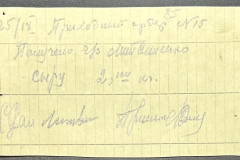 25/IX Приходный ордер № 15
Получено от Литвиненко
сыру 2,100 кг.
Сдал Литвин
Принял